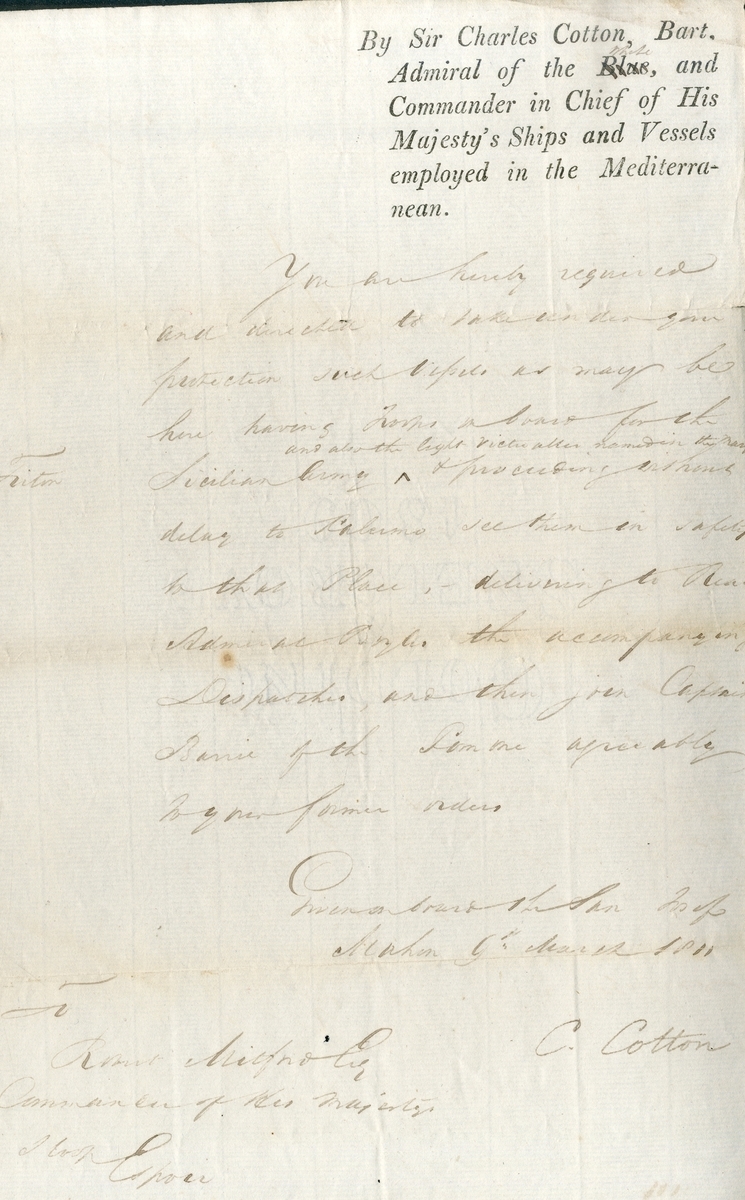 By Sir Charles Cotton, Bart.
White
Admiral of the Blue, and
Commander in Chief of His
Majesty's Ships and Vessels
employed in the Mediterra-
nean.
You are hereby required
and directed to take under your
protection such Vessels as may be
here having Troops aboard for the
and also the light victualler named in the
Triton
Sicilian Army ^ & proceeding without
delay to Palermo see them in safety
to that Place, - delivering to Rear
Admiral Boyles the accompanying
Dispatches, and then join Captain
Barrie of the Pomone agreeably
to your former orders
Given on board the San Josef
Mahon 9th March 1811
C. Cotton
To
Robert Mitford Esq
Commander of His Majesty's
Sloop Espoir